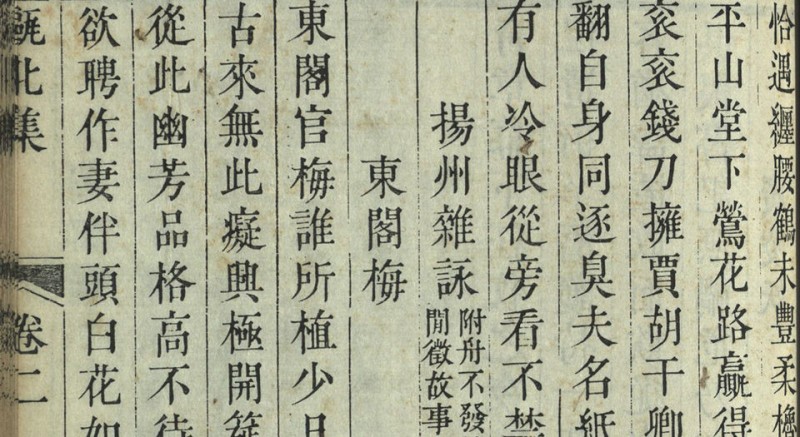 恰遇纏腰鶴未豐柔櫓
平山堂下鶯花路贏得
衮衮錢刀擁賈胡干卿
翻自身同逐臭夫名紙
有人冷眼從旁看不禁
揚州雜詠
附舟不發
閒徵故事
東閣梅
東閣官梅誰所植少日
古來無此癡興極開筵
從此幽芳品格高不待
欲聘作妻伴頭白花如
甌北集
卷二